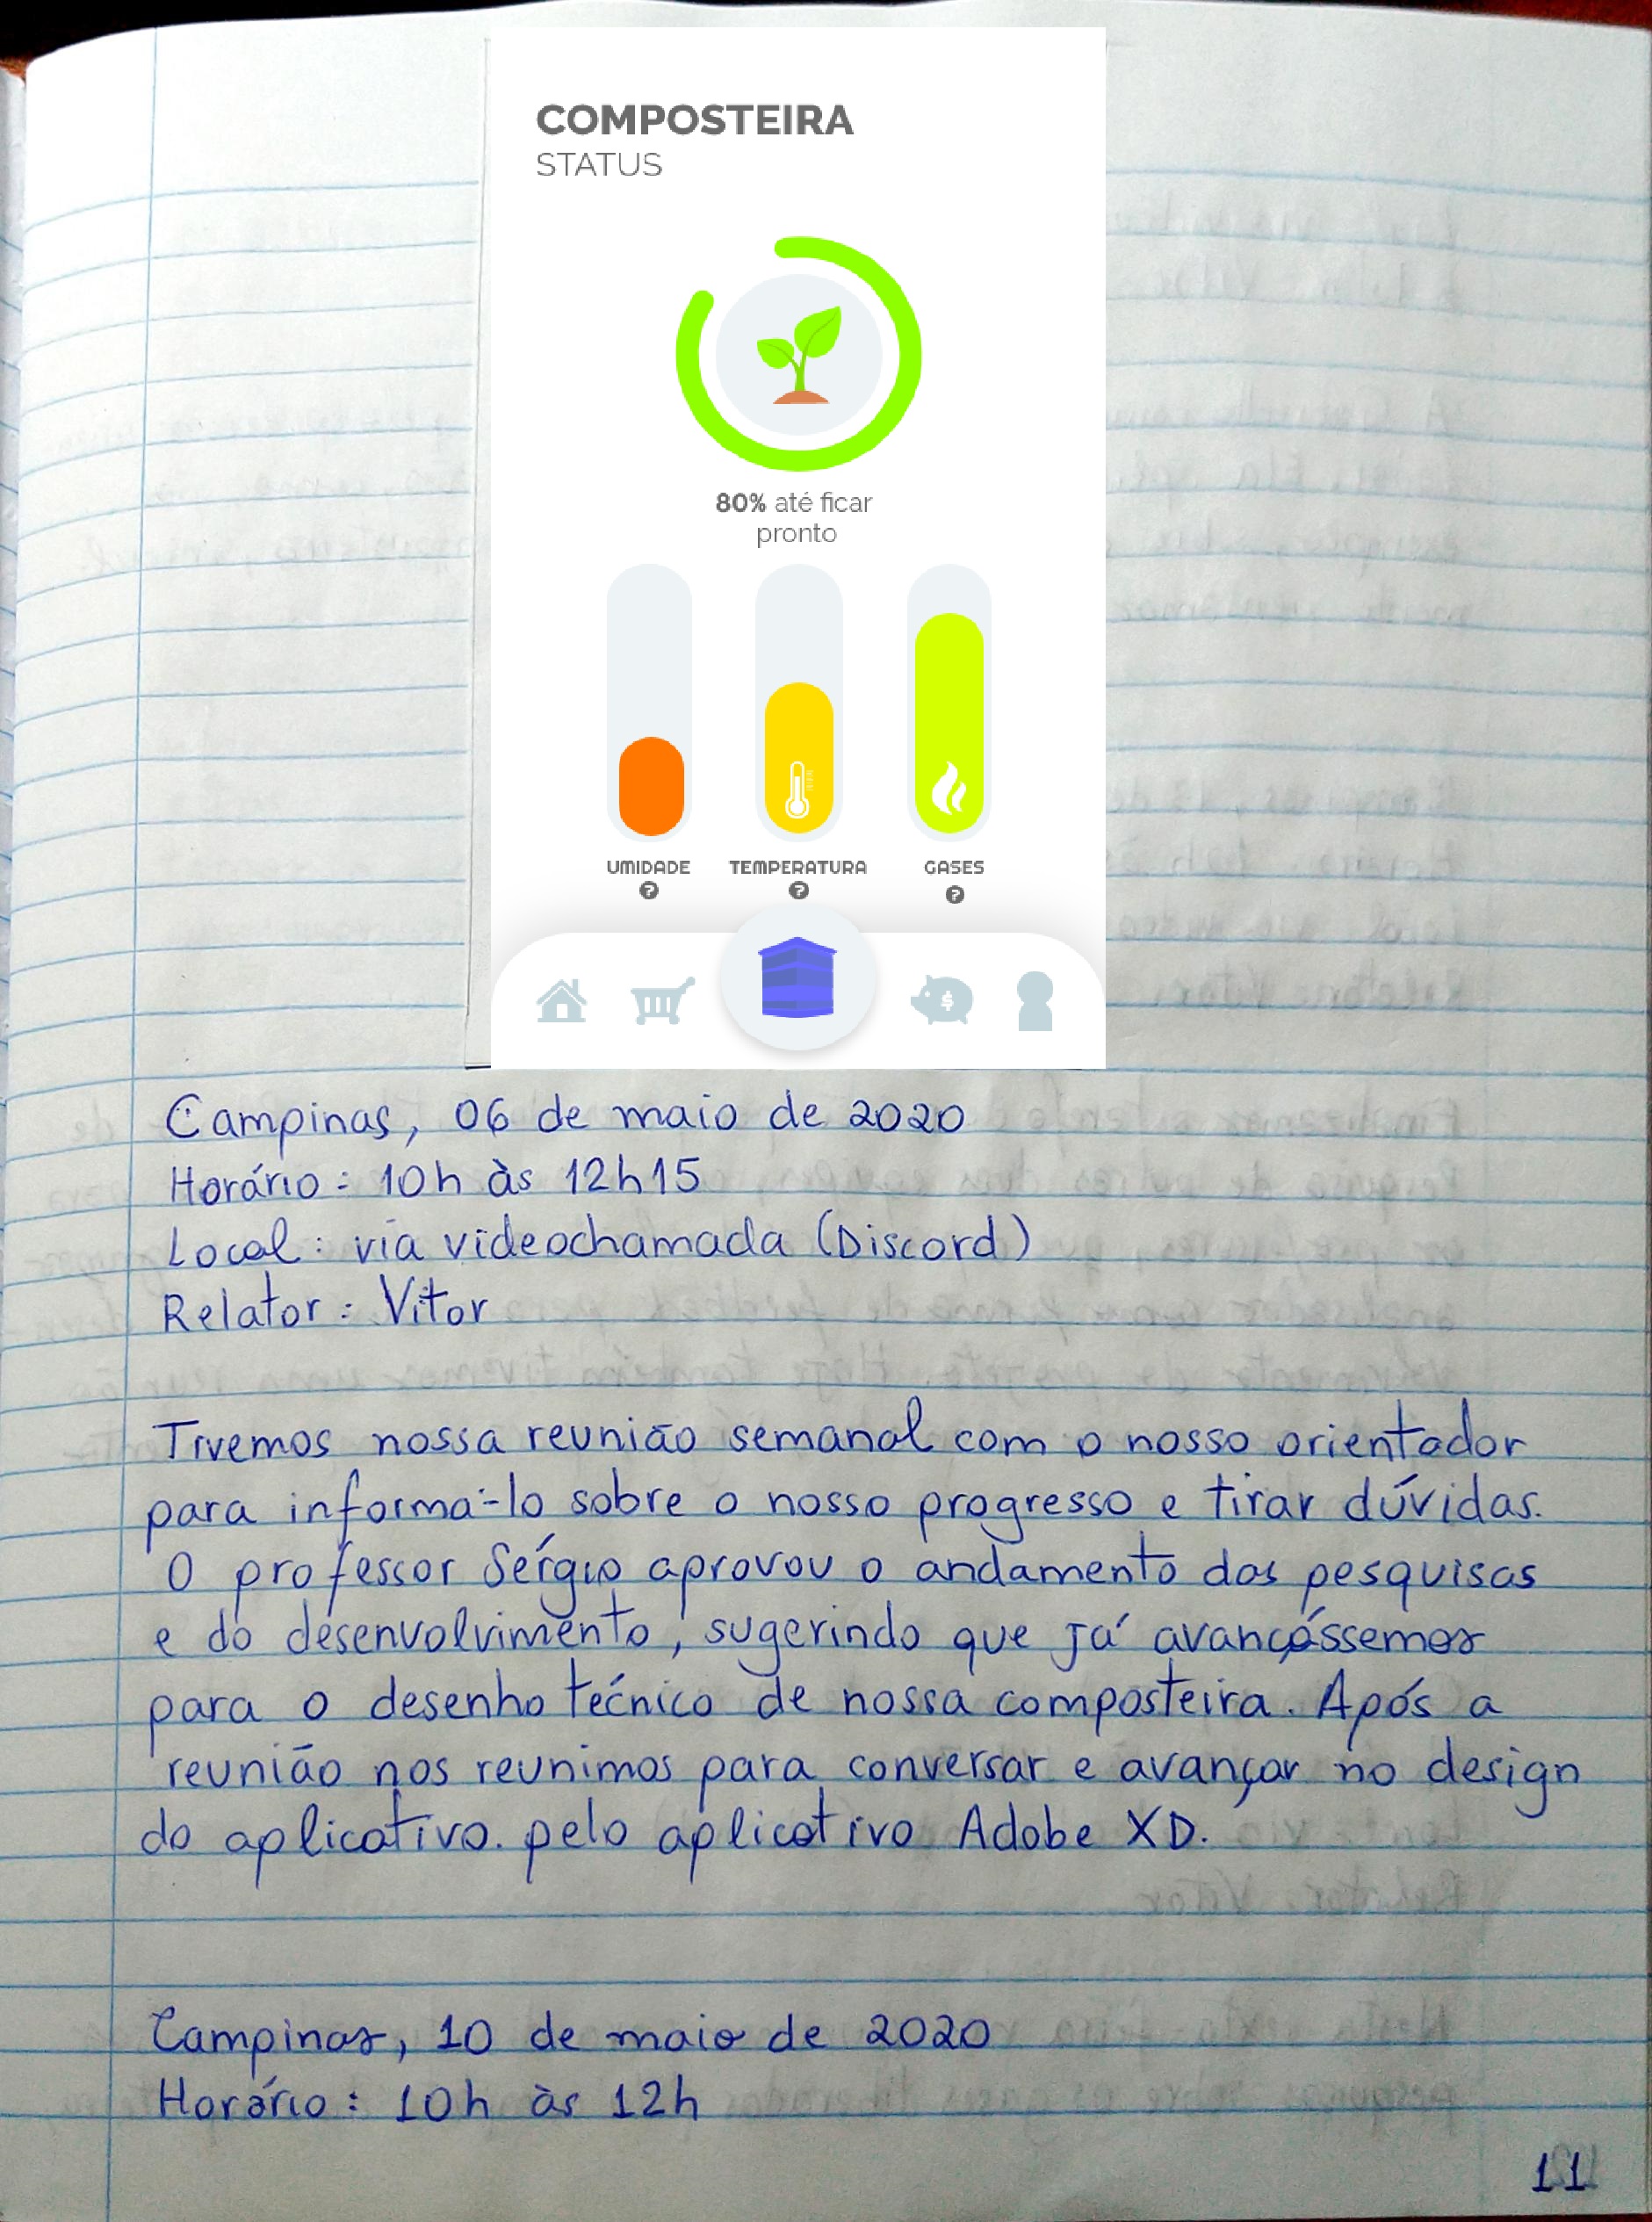 COMPOSTEIRA
STATUS
80% até ficar
pronto
UMIDADE TEMPERATURA GASES
? ? ?
$
Campinas, 06 de maio de 2020
Horário: 10h às 12h15
Local: via videochamada (Discord)
Relator: Vitor
Tivemos nossa reunião semanal com o nosso orientador
para informá-lo sobre o nosso progresso e tirar dúvidas.
O professor Sérgio aprovou o andamento das pesquisas
e do desenvolvimento, sugerindo que já avançássemos
para o desenho técnico de nossa composteira. Após a
reunião nos reunimos para conversar e avançar no design
do aplicativo. pelo aplicativo Adobe XD.
Campinas, 10 de maio de 2020
Horário: 10h às 12h
11